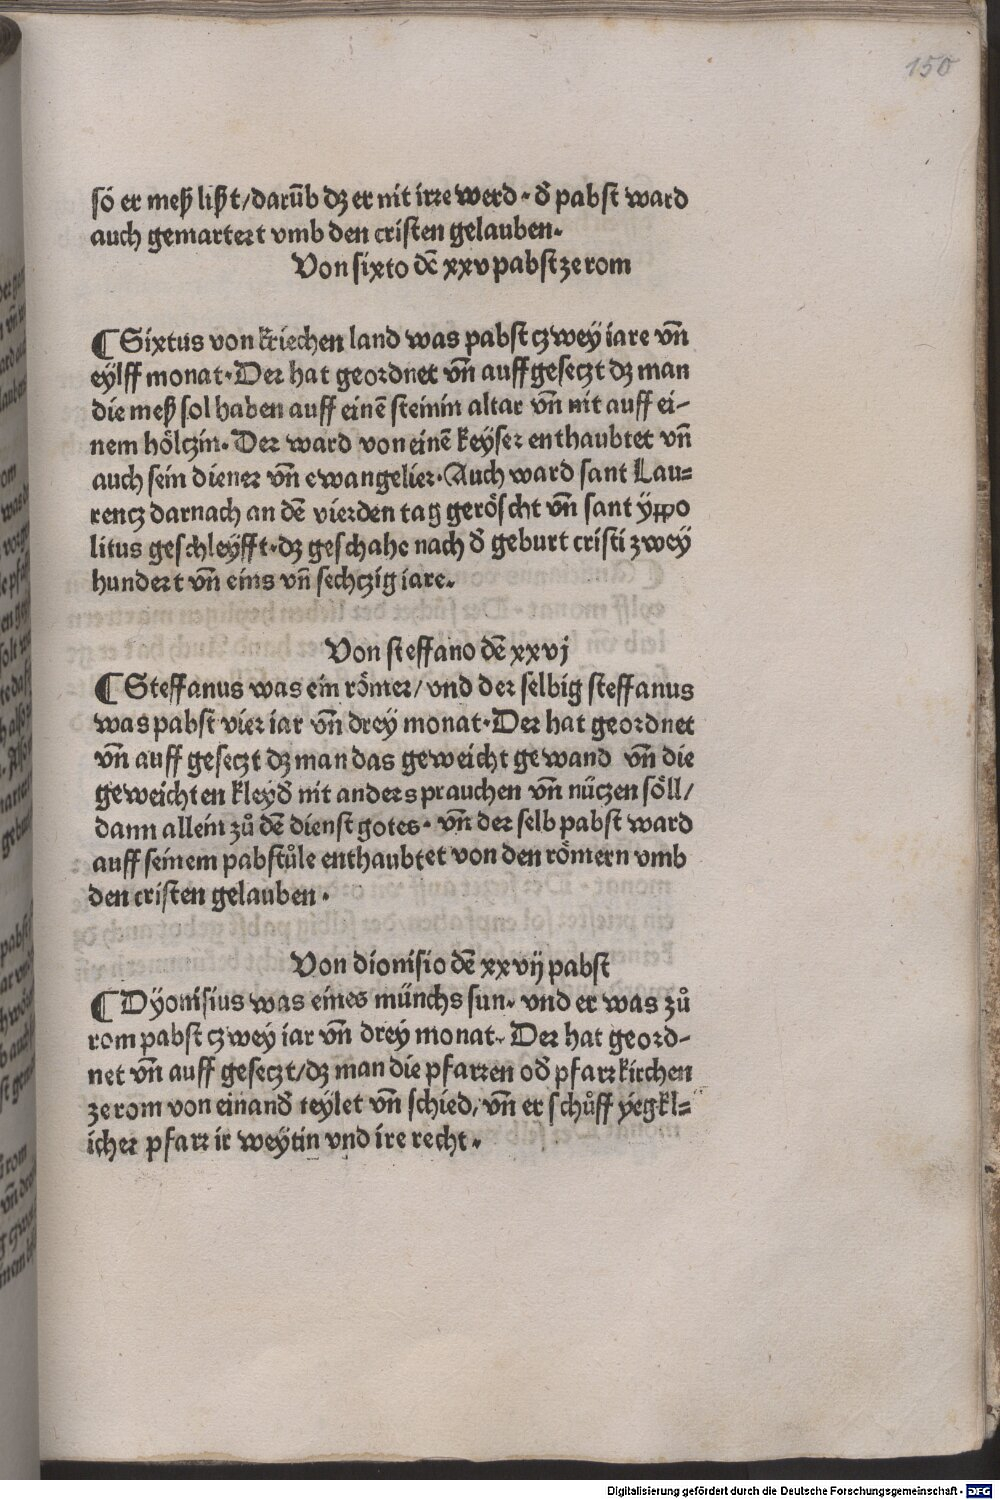 150
sö er meß lißt/darūb dz er nit irre werd · d̄ pabst ward
auch gemartert vmb den cristen gelauben.
Von sixto dē xxv pabst ze rom
¶ Sixtus von kriechen land was pabst czwey iare vn̄
eylff monat · Der hat geordnet vn̄ auff geseczt dz man
die meß sol haben auff einē steinin altar vn̄ nit auff ei-
nem hölczin · Der ward von einē keyser enthaubtet vn̄
auch sein diener vn̄ ewangelier · Auch ward sant Lau-
rencz darnach an dē vierden tag geröscht vn̄ sant yppo
litus geschleyfft · dz geschahe nach d̄ geburt cristi zwey
hundert vn̄ eins vn̄ sechczig iare.
Von steffano dē xxvj
¶ Steffanus was ein römer/ vnd der selbig steffanus
was pabst vier iar vn̄ drey monat · Der hat geordnet
vn̄ auff geseczt dz man das geweicht gewand vn̄ die
geweichten kleyd̄ nit anders prauchen vn̄ nüczen söll/
dann allein zů dē dienst gotes · vn̄ der selb pabst ward
auff seinem pabstůle enthaubtet von den römern vmb
den cristen gelauben ·
Von dionisio dē xxvij pabst
¶ Dyonisius was eines münchs sun · vnd er was zů
rom pabst czwey iar vn̄ drey monat · Der hat geord-
net vn̄ auff geseczt/dz man die pfarren od̄ pfarrkirchen
ze rom von einand̄ teylet vn̄ schied/ vn̄ er schůff yegkl-
icher pfarr ir weytin vnd ire recht ·
Digitalisierung gefördert durch die Deutsche Forschungsgemeinschaft - DFG